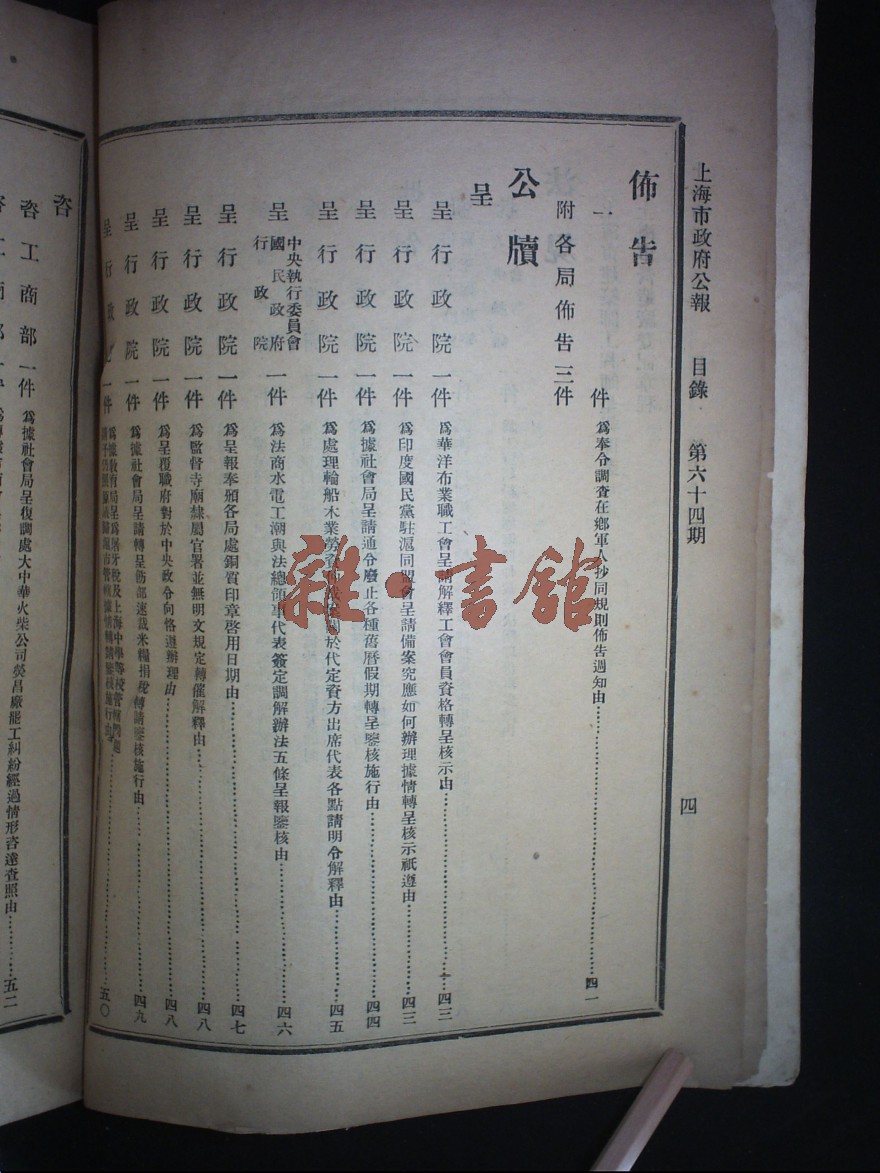 上海市政府公報 目錄 第六十四期 四
佈告
一 件 爲奉令調查在鄉軍人抄同規則佈告週知由 四一
附各局佈告三件
公牘
呈
呈行政院一件 爲華洋布業職工會呈請解釋工會會員資格轉呈核示由 四三
呈行政院一件 爲印度國民黨駐滬同盟會呈請備案究應如何辦理據情轉呈核示祇遵由 四三
呈行政院一件 爲據社會局呈請通令廢止各種舊曆假期轉呈鑒核施行由 四四
呈行政院一件 爲處理輪船木業勞資 於代定資方出席代表各點請明令解釋由 四五
呈中央執行委員會國民政府行政院一件 爲法商水電工潮與法總領事代表簽定調解辦法五條呈報鑒核由 四六
呈行政院一件 爲呈報奉頒各局處銅質印章啓用日期由 四七
呈行政院一件 爲監督寺廟隸屬官署並無明文規定轉催解釋由 四八
呈行政院一件 爲呈覆職府對於中央政令向恪遵辦理由 四八
呈行政院一件 爲據社會局呈請轉呈飭部速裁米糧捐稅轉請鑒核施行由 四九
呈行政 一件 爲據教育局呈爲屠牙稅及上海中學等校管轄問題 轉請鑒核施行由 五〇
咨
咨工商部一件 爲據社會局呈復調處大中華火柴公司熒昌廠罷工糾紛經過情形咨達查照由 五二
咨工商部一件
雜·書館